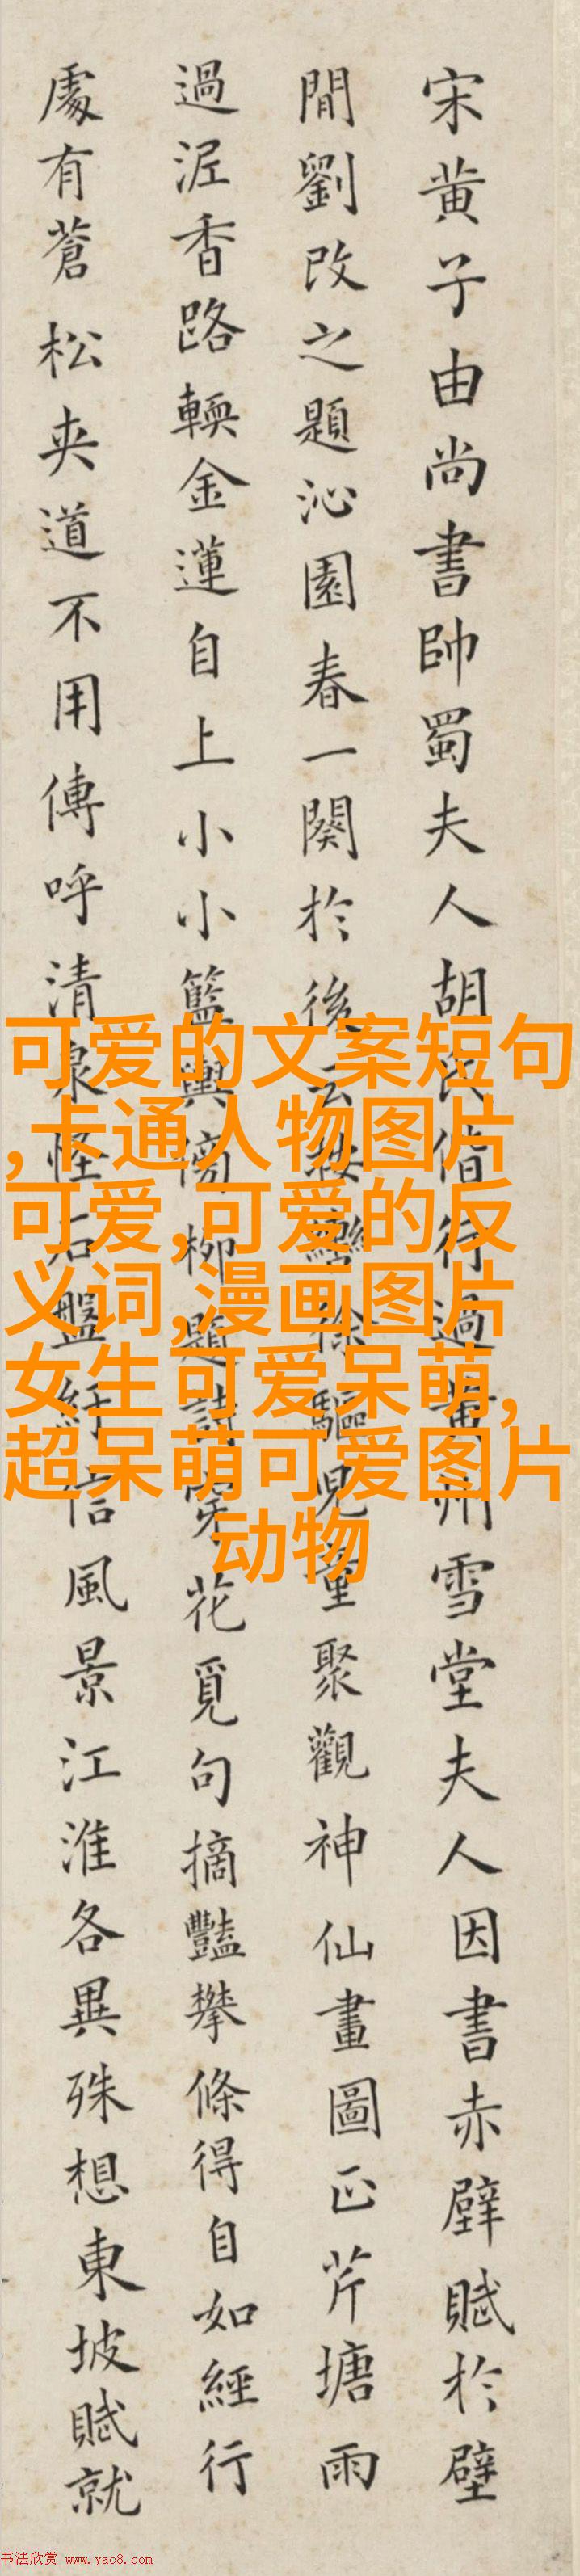 宋黄子由尚書帥蜀夫人胡氏偕行過黄州雪堂夫人因書赤壁賦於壁
間劉改之題沁園春一闋於後云按轡徐驅兒童聚觀神仙畫圖正芹塘雨
過泥香路輭金蓮自上小小籃輿傍柳題詩穿花覓句摘豔攀條得自如經行
處有蒼松夾道不用傳呼清泉怪石盤紆信風景江淮各異殊想東坡賦就
可爱的文案短句
,卡通人物图片
可爱,可爱的反
义词,漫画图片
女生可爱呆萌,
超呆萌可爱图片
动物
书法欣赏 www.yac8.com